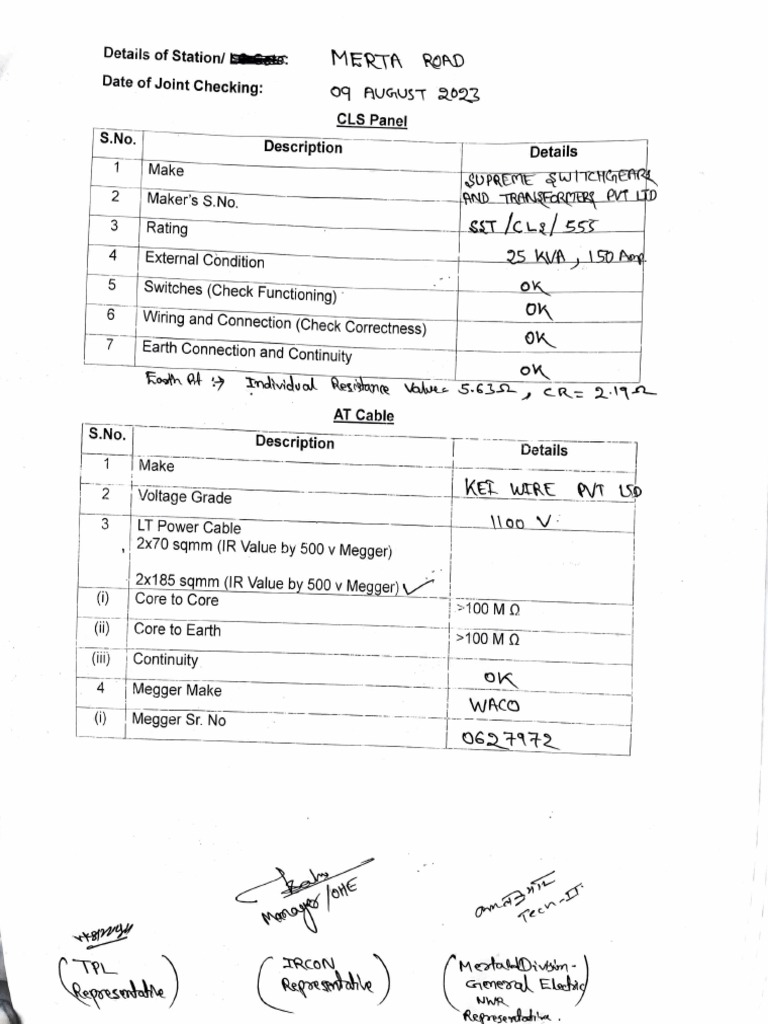 Details of Station/ MERTA ROAD
Date of Joint Checking: 09 AUGUST 2023
CLS Panel
S.No. Description Details
1 Make SUPREME SWITCHGEARS
AND TRANSFORMERS PVT LTD
2 Maker's S.No. SST/CLS/553
3 Rating 25 KVA, 150 Amp
4 External Condition OK
5 Switches (Check Functioning) OK
6 Wiring and Connection (Check Correctness) OK
7 Earth Connection and Continuity OK
Earth Pit :→ Individual Resistance Value= 5.63Ω, CR= 2.19Ω
AT Cable
S.No. Description Details
1 Make KEI WIRE PVT LTD
2 Voltage Grade 1100 V
3 LT Power Cable
2x70 sqmm (IR Value by 500 v Megger)
2x185 sqmm (IR Value by 500 v Megger) ✓
(i) Core to Core >100 M Ω
(ii) Core to Earth >100 M Ω
(iii) Continuity OK
4 Megger Make WACO
(i) Megger Sr. No 0627972
Manager/OHE
Tech-II
(TPL
Representative)
(IRCON
Representative)
(Merta Division-
General Electric
NWR
Representative.